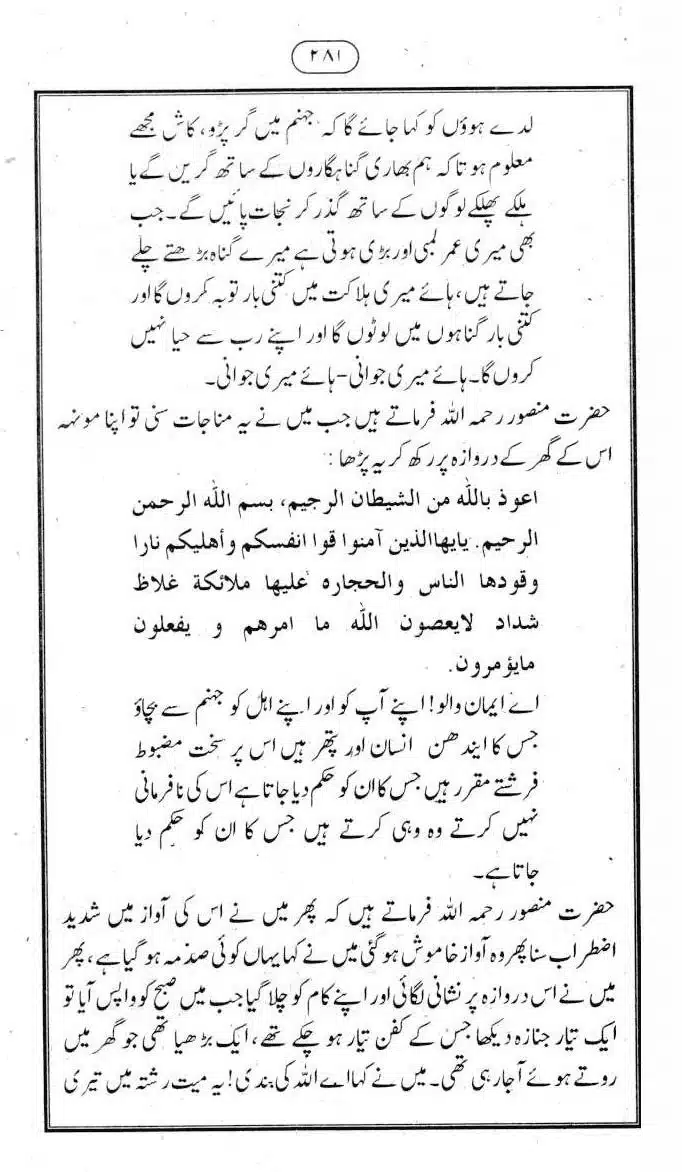 ۲۸۱
لدے ہوؤں کو کہا جائے گا کہ جہنم میں گر پڑو، کاش مجھے
معلوم ہوتا کہ ہم بھاری گناہگاروں کے ساتھ گریں گے یا
ہلکے پھلکے لوگوں کے ساتھ گذر کر نجات پائیں گے۔ جب
بھی میری عمر لمبی اور بڑی ہوتی ہے میرے گناہ بڑھتے چلے
جاتے ہیں، ہائے میری ہلاکت میں کتنی بار توبہ کروں گا اور
کتنی بار گناہوں میں لوٹوں گا اور اپنے رب سے حیا نہیں
کروں گا۔ ہائے میری جوانی-ہائے میری جوانی۔
حضرت منصور رحمہ اللہ فرماتے ہیں جب میں نے یہ مناجات سنی تو اپنا مونہہ
اس کے گھر کے دروازہ پر رکھ کر یہ پڑھا:
اعوذ باللّٰہ من الشیطان الرجیم، بسم اللّٰہ الرحمن
الرحیم. یایھاالذین آمنوا قوا انفسکم وأھلیکم نارا
وقودھا الناس والحجارہ علیھا ملائکة غلاظ
شداد لایعصون اللّٰہ ما امرھم و یفعلون
مایؤمرون.
اے ایمان والو! اپنے آپ کو اور اپنے اہل کو جہنم سے بچاؤ
جس کا ایندھن انسان اور پتھر ہیں اس پر سخت مضبوط
فرشتے مقرر ہیں جس کا ان کو حکم دیا جاتا ہے اس کی نافرمانی
نہیں کرتے وہ وہی کرتے ہیں جس کا ان کو حکم دیا
جاتا ہے۔
حضرت منصور رحمہ اللہ فرماتے ہیں کہ پھر میں نے اس کی آواز میں شدید
اضطراب سنا پھر وہ آواز خاموش ہو گئی میں نے کہا یہاں کوئی صدمہ ہو گیا ہے، پھر
میں نے اس دروازہ پر نشانی لگائی اور اپنے کام کو چلا گیا جب میں صبح کو واپس آیا تو
ایک تیار جنازہ دیکھا جس کے کفن تیار ہو چکے تھے، ایک بڑھیا تھی جو گھر میں
روتے ہوئے آ جا رہی تھی۔ میں نے کہا اے اللہ کی بندی! یہ میت رشتہ میں تیری